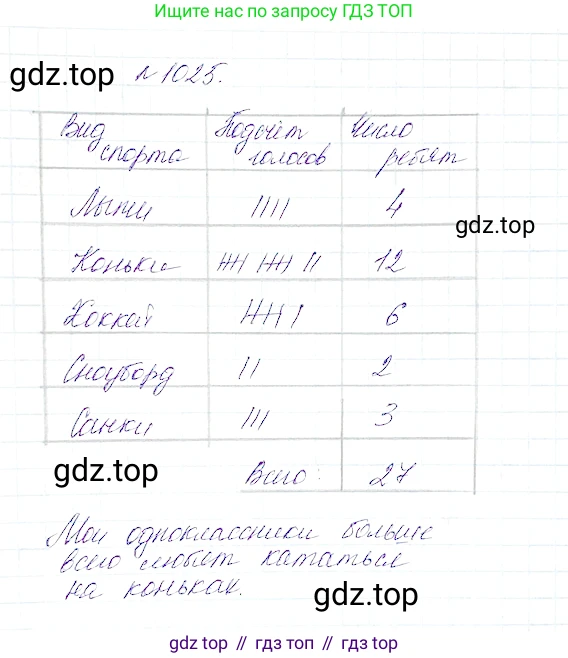 Ищите нас по запросу ГДЗ ТОП
gdz.top
№ 1025.
Вид спорта | Подсчёт голосов | Число ребят
Лыжи | |||| | 4
gdz.top
Коньки | 卌 卌 || | 12
Хоккей | 卌 | | 6
Сноуборд | || | 2
Санки | ||| | 3
gdz.top
Всего: 27
Мои одноклассники больше
всего любят кататься
на коньках.
gdz.top
gdz.top // гдз топ // gdz.top